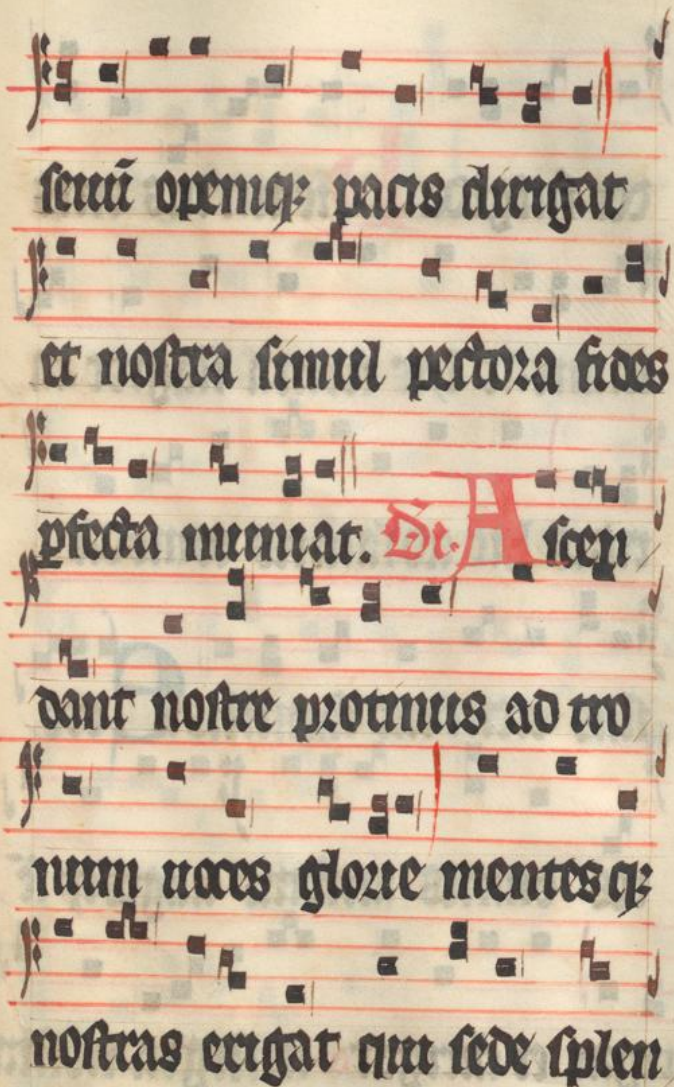 seuū opemq; pacis dirigat
et nostra simul pectora fides
ꝑfecta muniat. Di. Ascen
dant nostre protinus ad tro
num uoces glorie mentesq;
nostras erigat qui sede splen